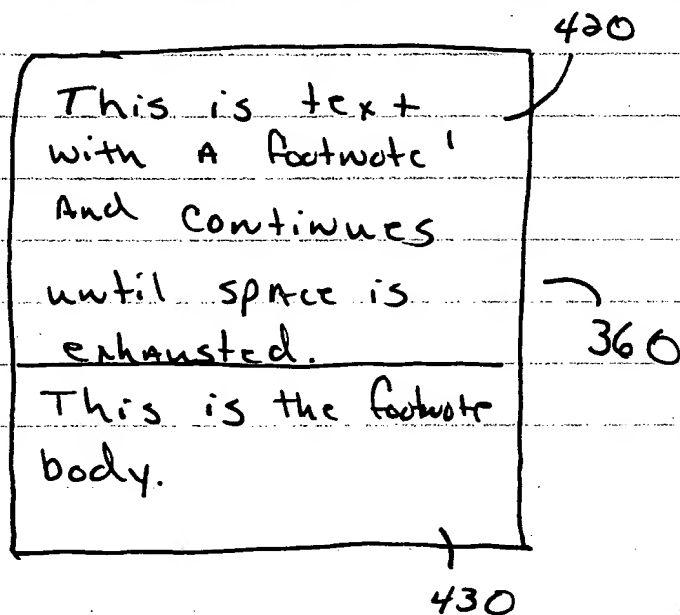 420
This is text
with A footnote ¹
And continues
until space is
exhausted.
360
This is the footnote
body.
430